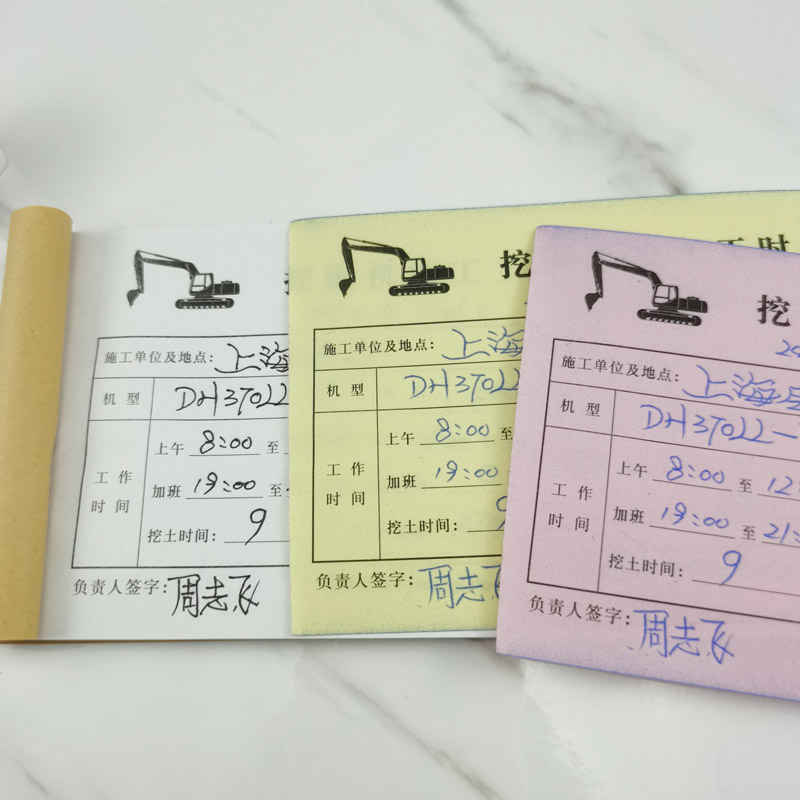 施工单位及地点: 上海
机 型 DH370LL
工作时间
上午 8:00 至
加班 19:00 至
挖土时间: 9
负责人签字: 周志飞
挖 工时
施工单位及地点: 上海
机 型 DH370LL
工作时间
上午 8:00 至
加班 19:00
挖土时间:
负责人签字: 周志飞
挖
20
施工单位及地点: 上海
机 型 DH370LL-
工作时间
上午 8:00 至 12:
加班 19:00 至 21:
挖土时间: 9
负责人签字: 周志飞